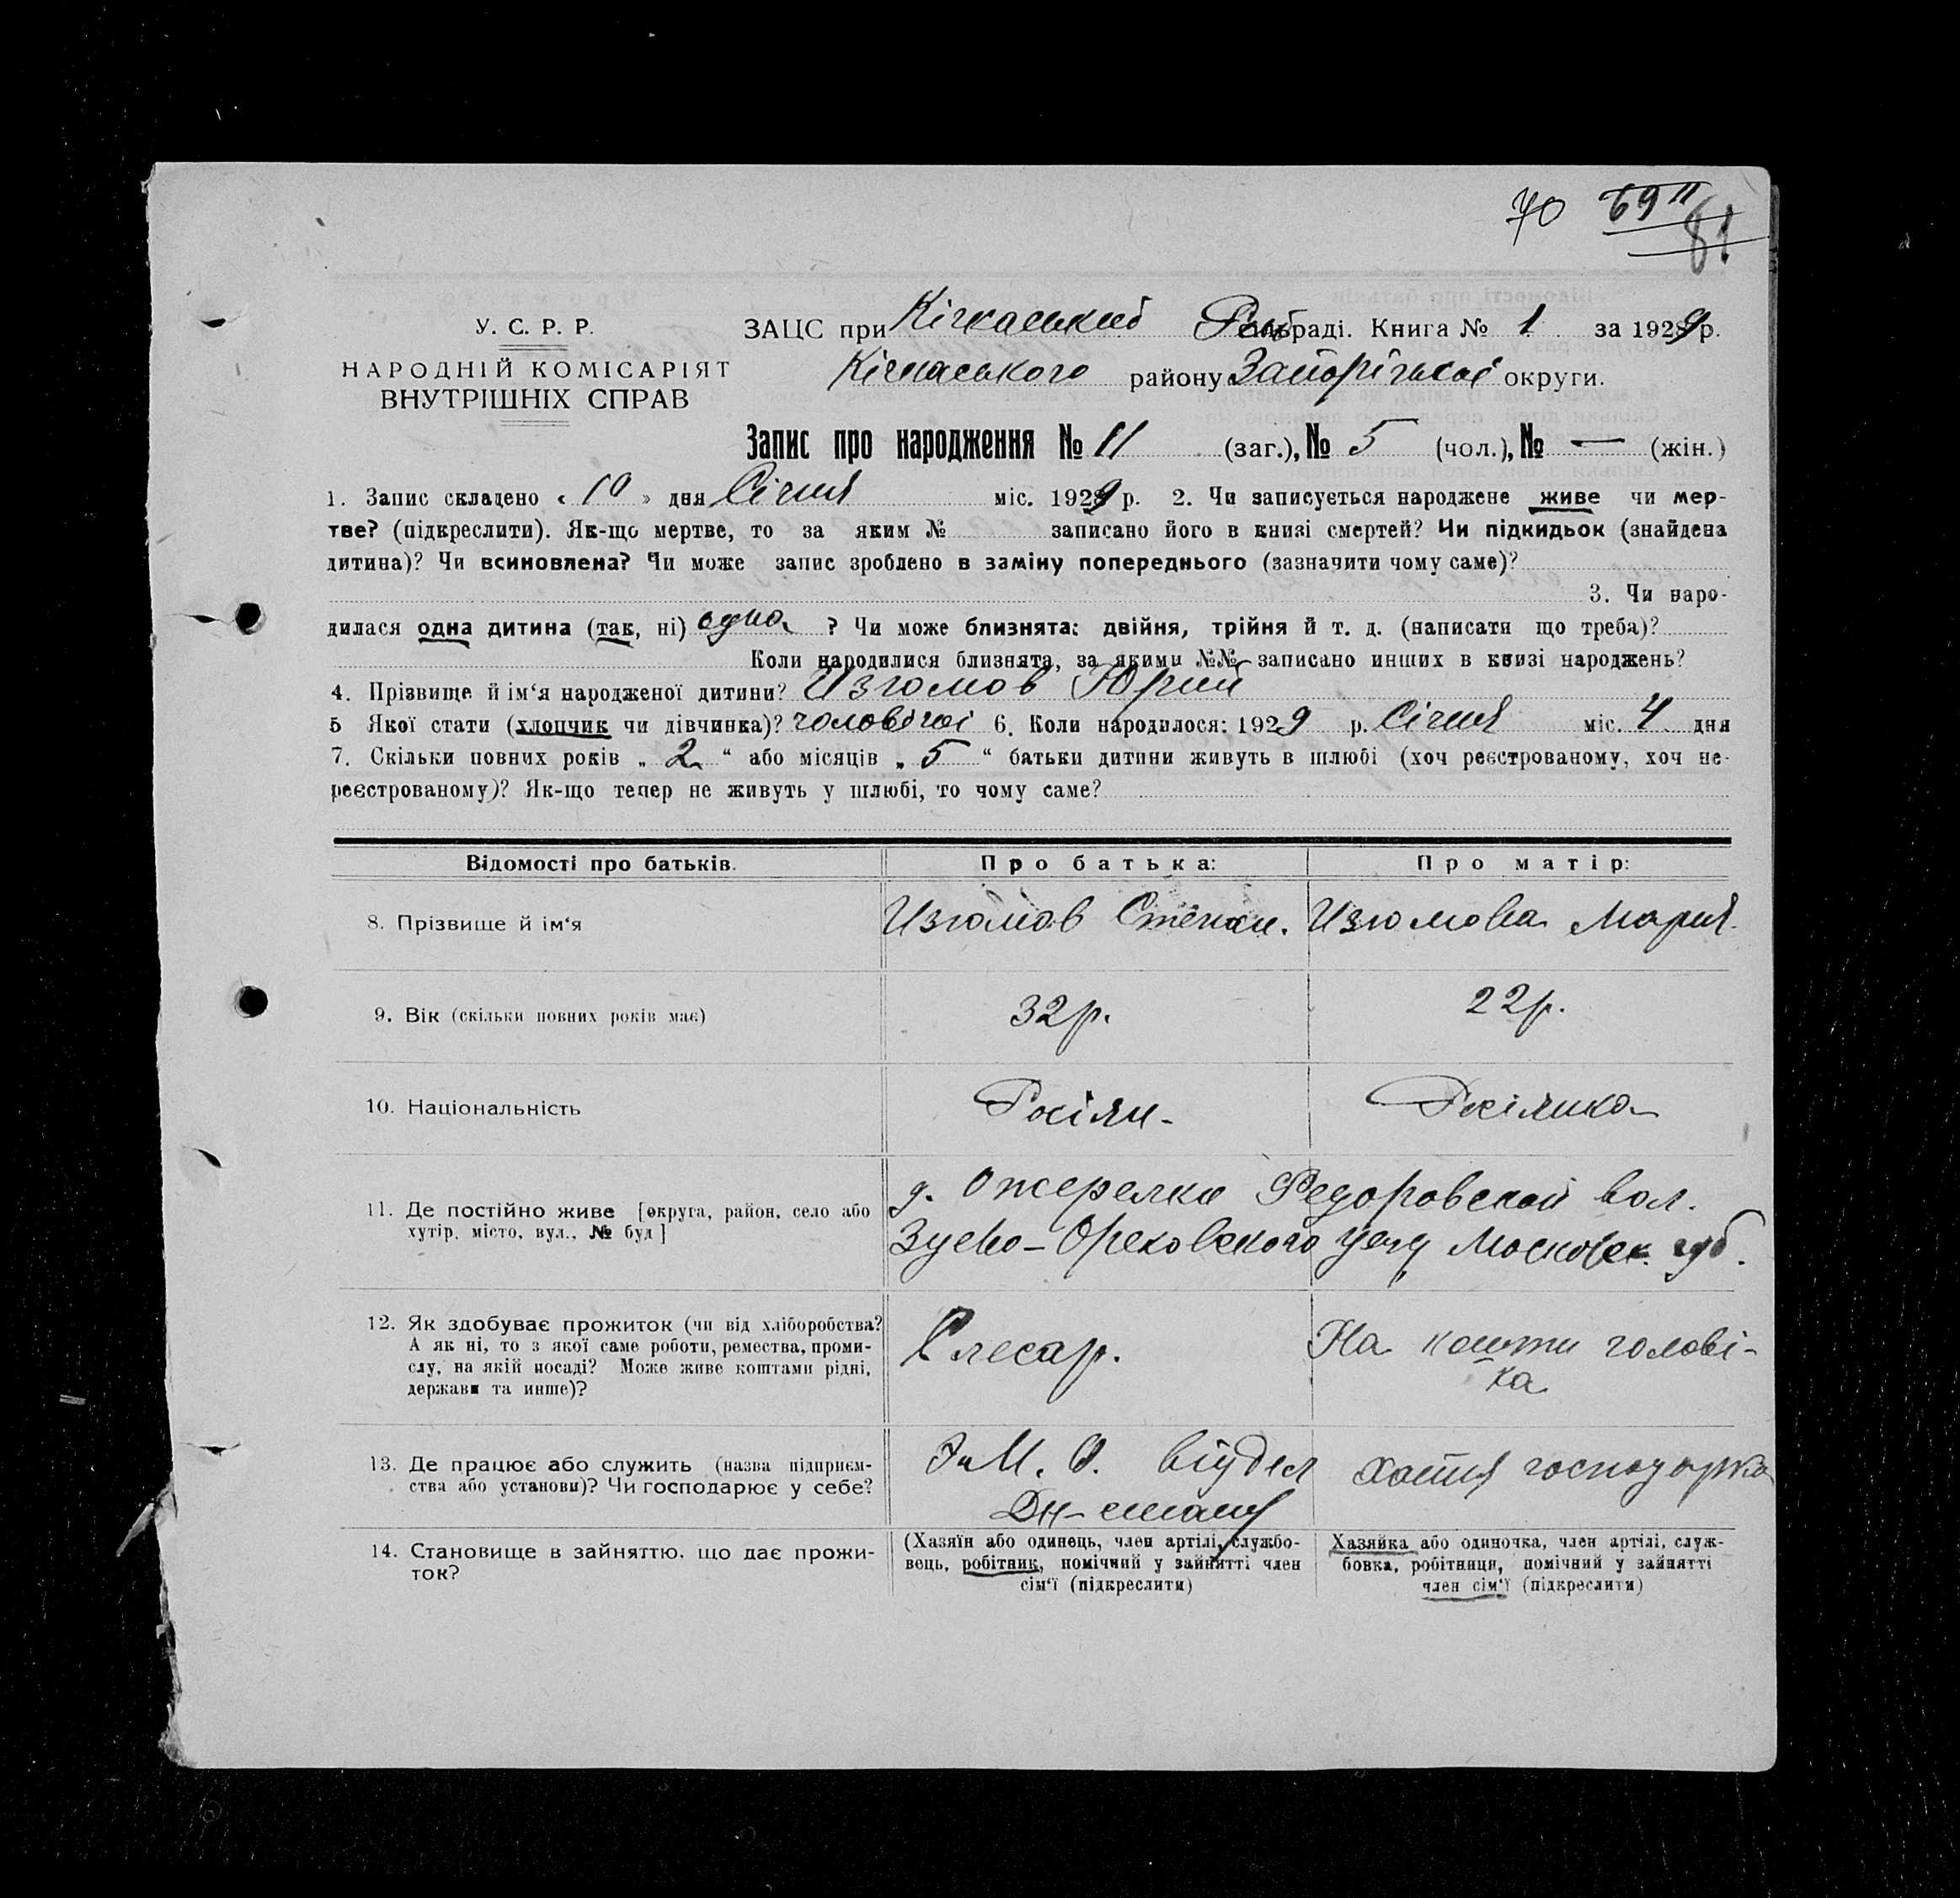 70 69 11
81
У. С. Р. Р.
НАРОДНІЙ КОМІСАРІЯТ
ВНУТРІШНІХ СПРАВ
ЗАЦС при Кічкаській раді. Книга № 1 за 1929 р.
Кічкаського району Запорізької округи.
Запис про народження № 11 (заг.), № 5 (чол.), № — (жін.)
1. Запис складено « 10 » дня Січня міс. 1929 р. 2. Чи записується народжене живе чи мер-
тве? (підкреслити). Як-що мертве, то за яким № записано його в книзі смертей? Чи підкидьок (знайдена
дитина)? Чи всиновлена? Чи може запис зроблено в заміну попереднього (зазначити чому саме)?
3. Чи наро-
дилася одна дитина (так, ні) одна ? Чи може близнята: двійня, трійня й т. д. (написати що треба)?
Коли народилися близнята, за якими №№ записано инших в книзі народжень?
4. Прізвище й ім‘я народженої дитини? Изгомов Юрий
5 Якої стати (хлопчик чи дівчинка)? чоловічої 6. Коли народилося: 1929 р. Січня міс. 4 дня
7. Скільки повних років „ 2 “ або місяців „ 5 “ батьки дитини живуть в шлюбі (хоч реєстрованому, хоч не-
реєстрованому)? Як-що тепер не живуть у шлюбі, то чому саме?
Відомості про батьків. Про батька: Про матір:
8. Прізвище й ім‘я Изгомов Степан. Изгомова Мария.
9. Вік (скільки повних років має) 32 р. 22 р.
10. Національність Росіян- Росіянка
11. Де постійно живе [округа, район, село або
хутір, місто, вул., № буд]
д. Ожерелки Федоровской вол.
Зуево-Ореховского уезд Московск. губ.
12. Як здобуває прожиток (чи від хліборобства?
А як ні, то з якої саме роботи, ремества, проми-
слу, на якій посаді? Може живе коштами рідні,
держави та инше)?
Слесар.
На кошти чолові-
ка
13. Де працює або служить (назва підприєм-
ства або установи)? Чи господарює у себе?
відділ
хатня господарка
14. Становище в зайняттю, що дає прожи-
ток?
(Хазяїн або одинець, член артілі, службо-
вець, робітник, помічний у зайнятті член
сім‘ї (підкреслити)
Хазяйка або одиночка, член артілі, служ-
бовка, робітниця, помічний у зайнятті
член сім‘ї (підкреслити)